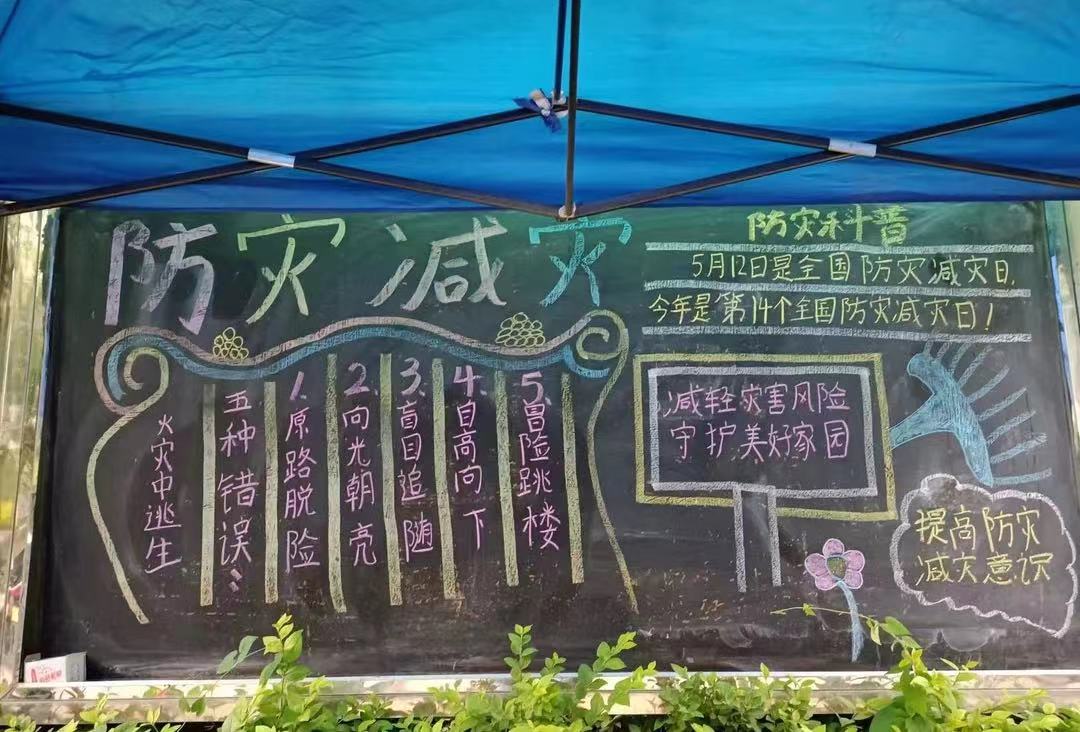 防灾减灾
火灾中逃生
五种错误:
1.原路脱险
2.向光朝亮
3.盲目追随
4.自高向下
5.冒险跳楼
防灾科普
5月12日是全国防灾减灾日,
今年是第14个全国防灾减灾日!
减轻灾害风险
守护美好家园
提高防灾
减灾意识